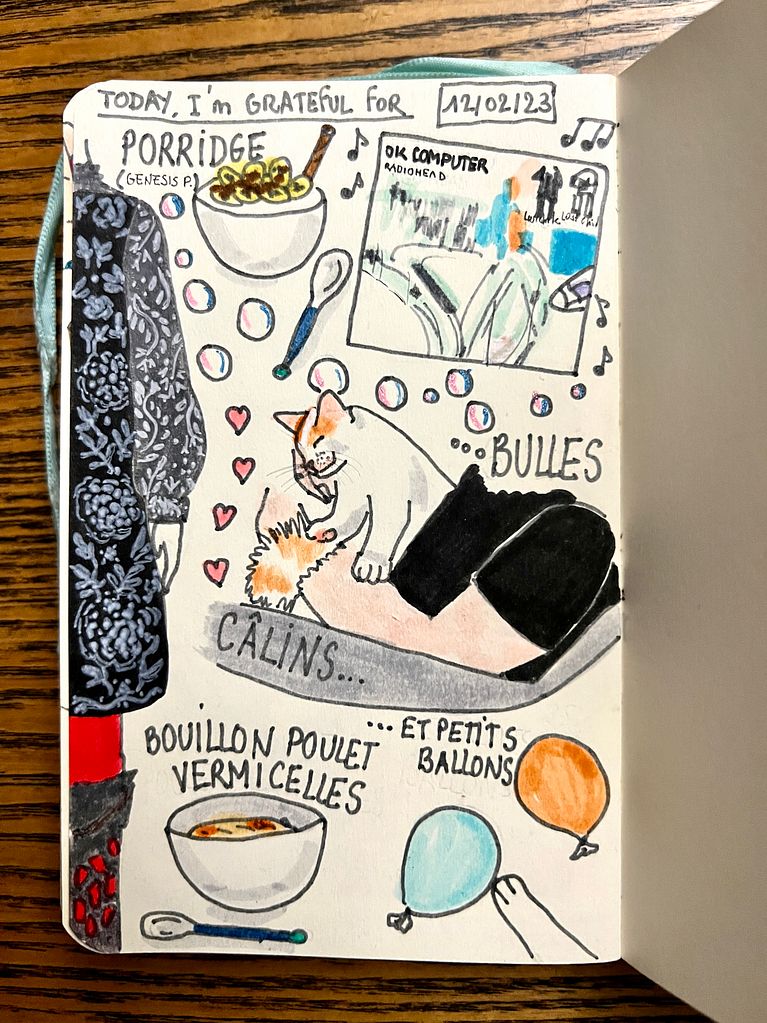 TODAY, I'm GRATEFUL FOR
12/02/23
PORRIDGE
(GENESIS P.)
OK COMPUTER
RADIOHEAD
...BULLES
CÂLINS...
BOUILLON POULET
VERMICELLES
...ET PETITS
BALLONS